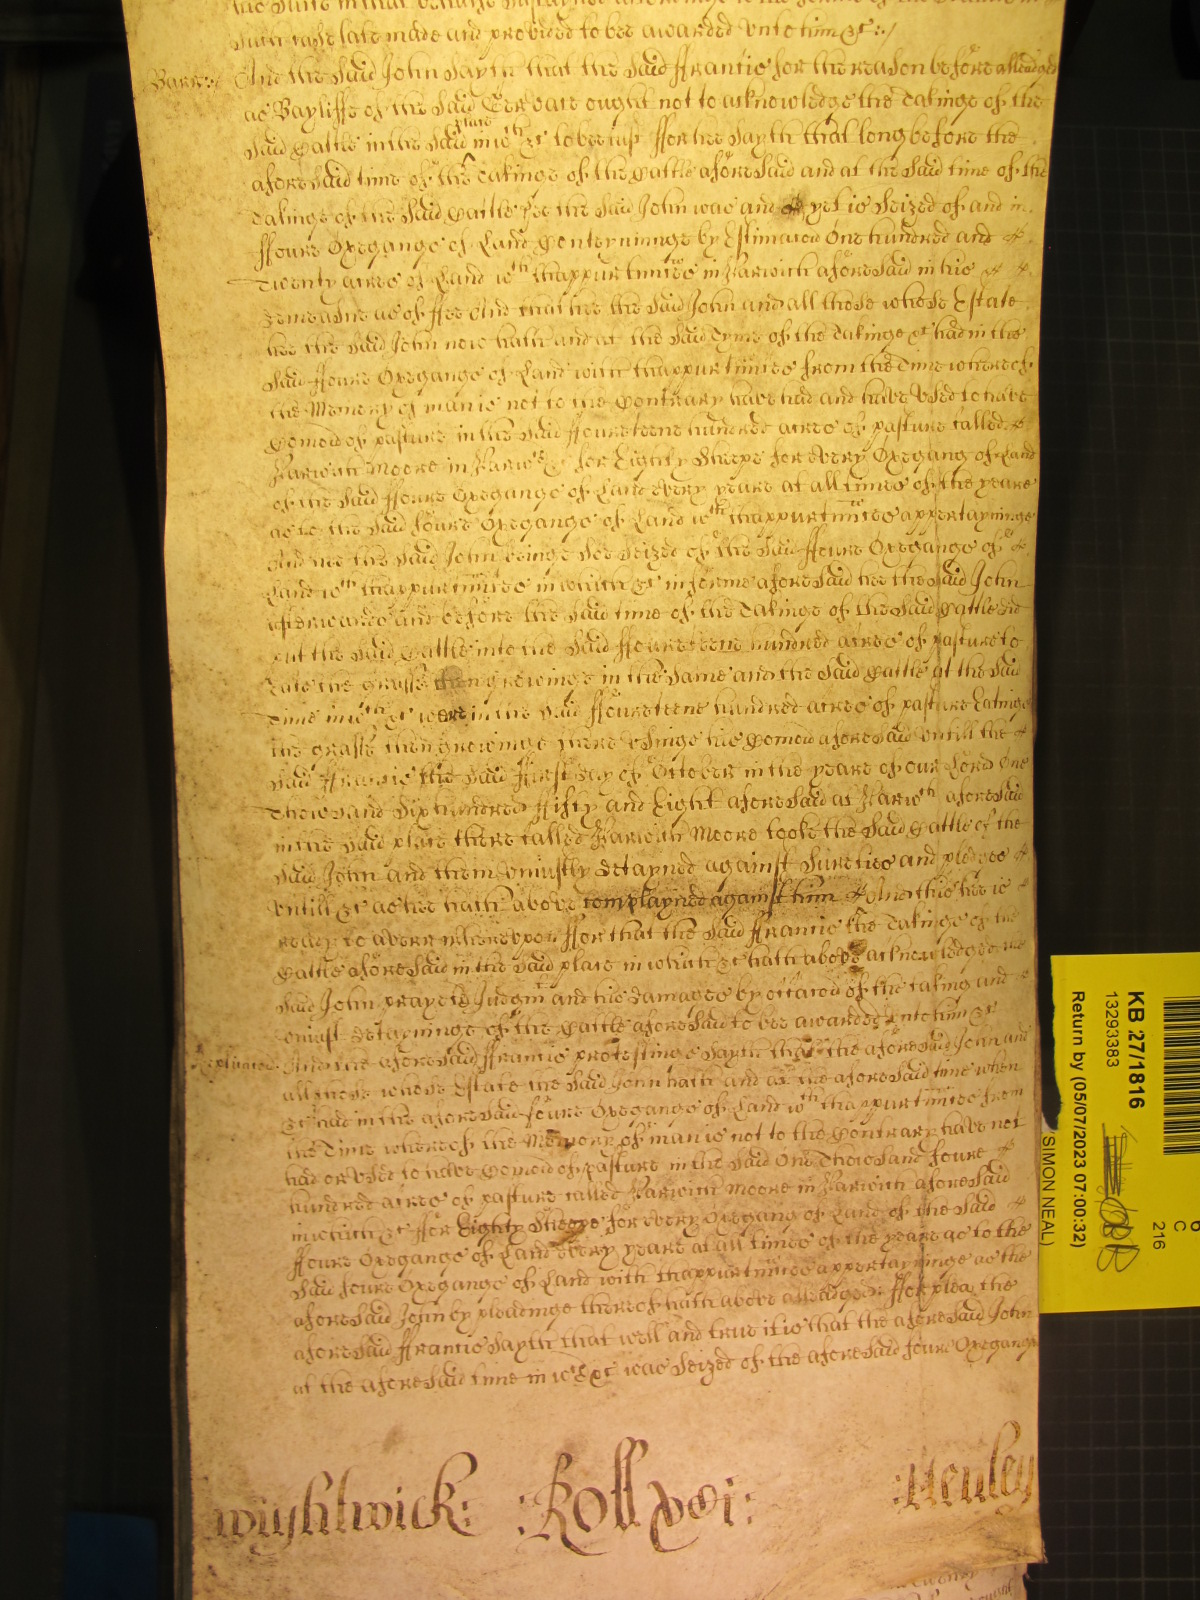 such case late made and provided to bee awarded unto him &c:/
Barr:/ And the said John Sayth that the said ffrancis for the reason before alleadged
as Bayliffe of the said ought not to acknowledge the takinge of the
said Cattle in the said place in wch &c to bee iust ffor hee Sayth that long before the
aforesaid time of the takinge of the Cattle aforesaid and at the said time of the
takinge of the said Cattle hee the said John was and yet is seized of and in
ffoure Oxegange of Land Conteyninge by Estimacon One hundred and
Twenty acres of Land wth thappurtnnces in Harwith aforesaid in his
demeasne as of ffee And that hee the said John and all those whose Estate
hee the said John now hath and at the said Tyme of the takinge &c had in the
said ffoure Oxegange of Land with thappurtnnces from the Time whereof
the Memory of man is not to the Contrary have had and have used to have
Comon of pasture in the said ffoureteene hundred acres of pasture called
Harwith Moore in Harwth &c for Eighty Sheepe for every Oxegang of Land
of the said ffoure Oxegange of Land every yeare at all times of the yeare
as to the said foure Oxegange of Land wth thappurtnnces appertayninge
And hee the said John beinge soe seized of the said ffoure Oxegange of
Land wth thappurtnnces in which &c in forme aforesaid hee the said John
afterwards and before the said time of the takinge of the said Cattle did
put the said Cattle into the said ffoureteene hundred acres of pasture to
Eate the grasse then growinge in the same and the said Cattle at the said
Time in wch &c were in the said ffoureteene hundred acres of pasture Eatinge
the grasse then growinge there usinge his Comon aforesaid untill the
said ffrancis the said ffirst day of October in the yeare of our Lord One
Thousand Six hundred ffifty and Eight aforesaid at Harwth aforesaid
in the said place there called Harwith Moore tooke the said Cattle of the
said John and them uniustly detayned against sureties and pledges
untill &c as hee hath above complayned against him And this hee is
ready to averr whereupon ffor that the said ffrancis the takinge of the
Cattle aforesaid in the said place in which &c hath above acknowledged the
said John prayeth Judgmt and his damages by occacon of the taking and
uniust detayninge of the Cattle aforesaid to bee awarded unto him &c
Replicacon And the aforesaid ffrancis protestinge sayth that the aforesaid John and
all those whose Estate the said John hath and at the aforesaid time when
&c had in the aforesaid foure Oxegange of Land wth thappurtnnces from
the Time whereof the Memory of man is not to the Contrary have not
had or used to have Comon of pasture in the said One Thowsand foure
hundred acres of pasture called Harwith Moore in Harwith aforesaid
in which &c ffor Eighty Sheepe for every Oxegang of Land of the said
ffoure Oxegange of Land every yeare at all times of the yeare as to the
said foure Oxegange of Land with thappurtnnces appertayninge as the
aforesaid John by pleadinge thereof hath above alleadged ffor plea the
aforesaid ffrancis sayth that well and true it is that the aforesaid John
at the aforesaid time in wch &c was seized of the aforesaid foure Oxegange
Wightwick: :Roll :Henley
KB 27/1816
13293383
Return by (05/07/2023 07:00:32)
(SIMON NEAL)
C
216